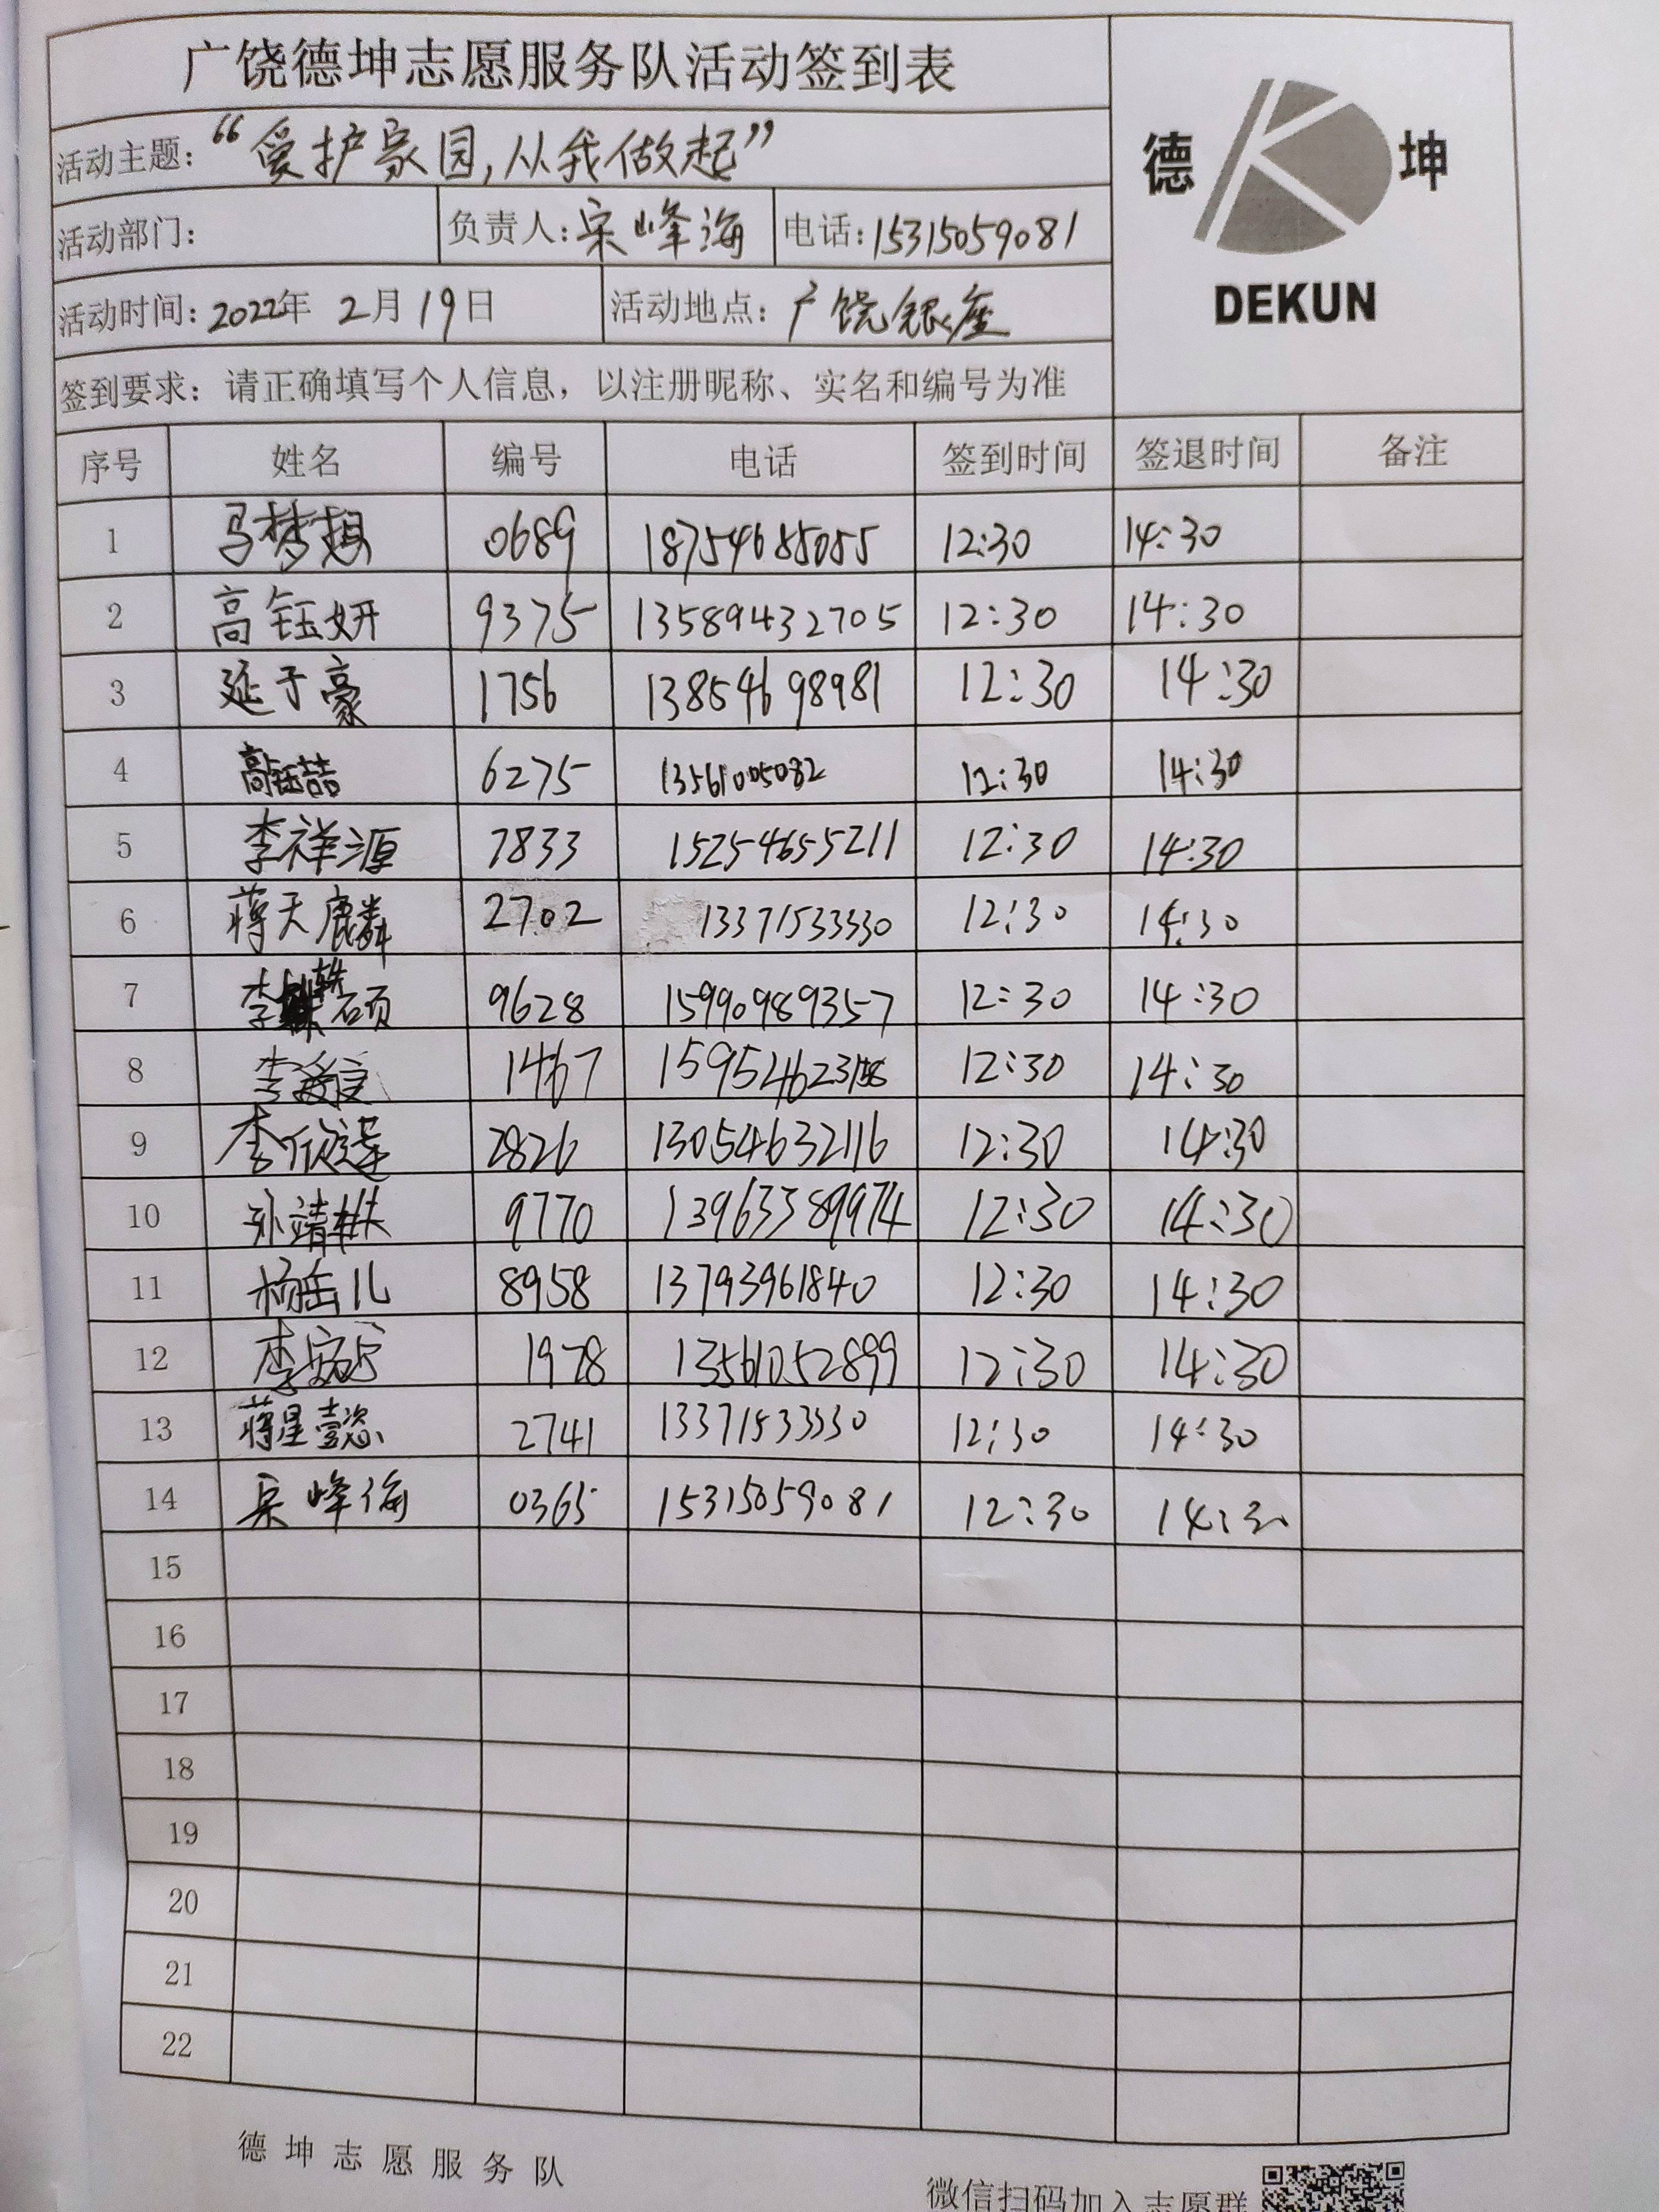 广饶德坤志愿服务队活动签到表
活动主题：“爱护家园，从我做起”
德 坤
DEKUN
活动部门： 负责人：宋峰海 电话：15315059081
活动时间：2022年 2月19日 活动地点：广饶银座
签到要求：请正确填写个人信息，以注册昵称、实名和编号为准
序号 姓名 编号 电话 签到时间 签退时间 备注
1 马梦想 0689 18754685055 12:30 14:30
2 高钰妍 9375 13589432705 12:30 14:30
3 延于豪 1756 13854698981 12:30 14:30
4 高钰喆 6275 13561005082 12:30 14:30
5 李祥源 7833 15254655211 12:30 14:30
6 蒋天麟 2702 13371533330 12:30 14:30
7 李轶硕 9628 15990989357 12:30 14:30
8 李 1467 12:30 14:30
9 李欣 2826 13054632116 12:30 14:30
10 孙靖 9770 13963389974 12:30 14:30
11 杨岳儿 8958 13793961840 12:30 14:30
12 李 1978 13561052899 12:30 14:30
13 蒋星懿 2741 13371533330 12:30 14:30
14 宋峰海 0365 15315059081 12:30 14:30
15
16
17
18
19
20
21
22
德坤志愿服务队
微信扫码加入志愿群